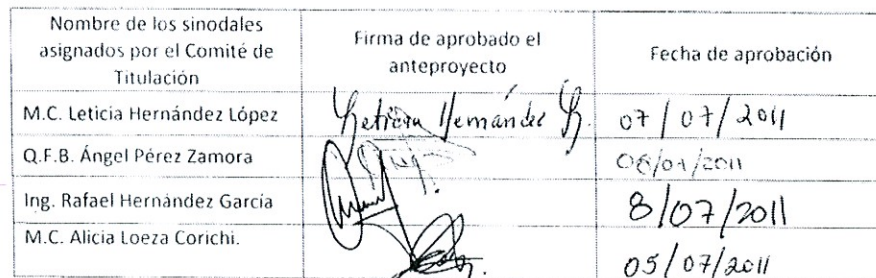 Nombre de los sinodales
asignados por el Comité de
Titulación
Firma de aprobado el
anteproyecto
Fecha de aprobación
M.C. Leticia Hernández López
Leticia Hernández L.
07/07/2011
Q.F.B. Ángel Pérez Zamora
Ing. Rafael Hernández García
8/07/2011
M.C. Alicia Loeza Corichi.
05/07/2011